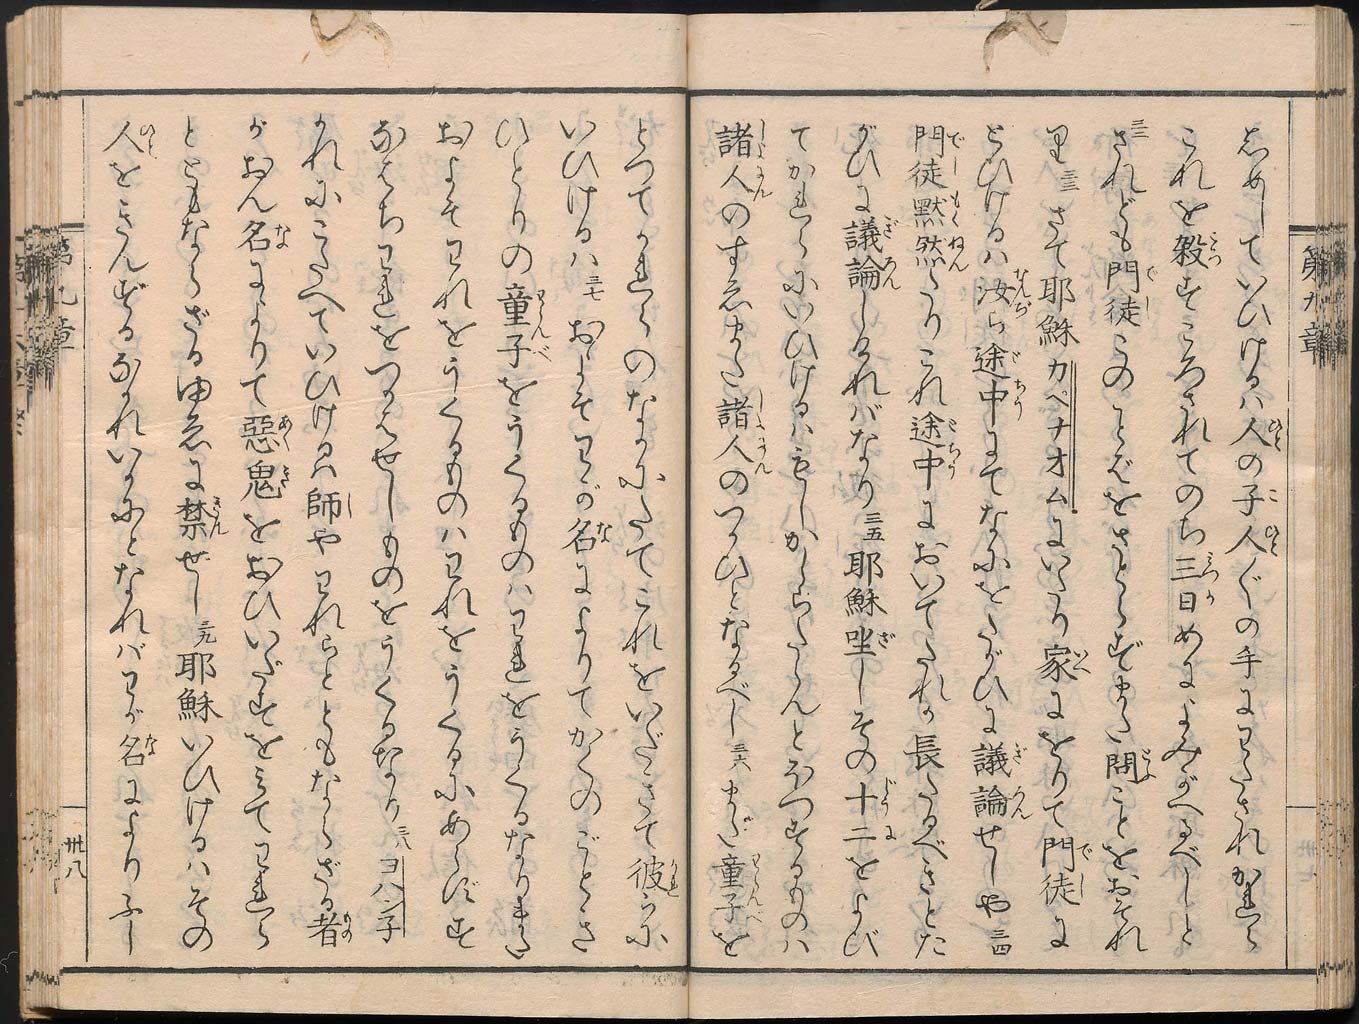 第九章
志めしていひけるハ人の子人〲の手にわたされかれら
これを殺せころされてのち三日めによみがへるべしと
三二されども門徒このことばをさとらずまた問ことをおそれ
里三三さて耶穌カペナオムにいたり家にをりて門徒に
とひけるハ汝ら途中にてなにをたがひに議論せしや三四
門徒黙然たりこれ途中においてたれか長たるべきとた
がひに議論しけれバなり三五耶穌坐しその十二をよび
てかれらにいひけるハもしかしらたらんとほつするものハ
諸人のすゑまた諸人のつかひとなるべし三六また童子を
とつてかれらのなかにたてこれをいだきて彼らに
いひけるハ三七およそわが名によりてかくのごとき
ひとりの童子をうくるものハわれをうくるなりまた
およそわれをうくるものハわれをうくるにあらずす
なはちわれをつかはせしものをうくるなり三八ヨハン子
かれにこたへていひけるハ師やわれらとともならざる者
がおん名によりて惡鬼をおひいだすをみてわれら
とともならざるゆゑに禁せし三九耶穌いひけるハその
人をきんずるなかれいかにとなれバわが名によりふし
第九章
卅八